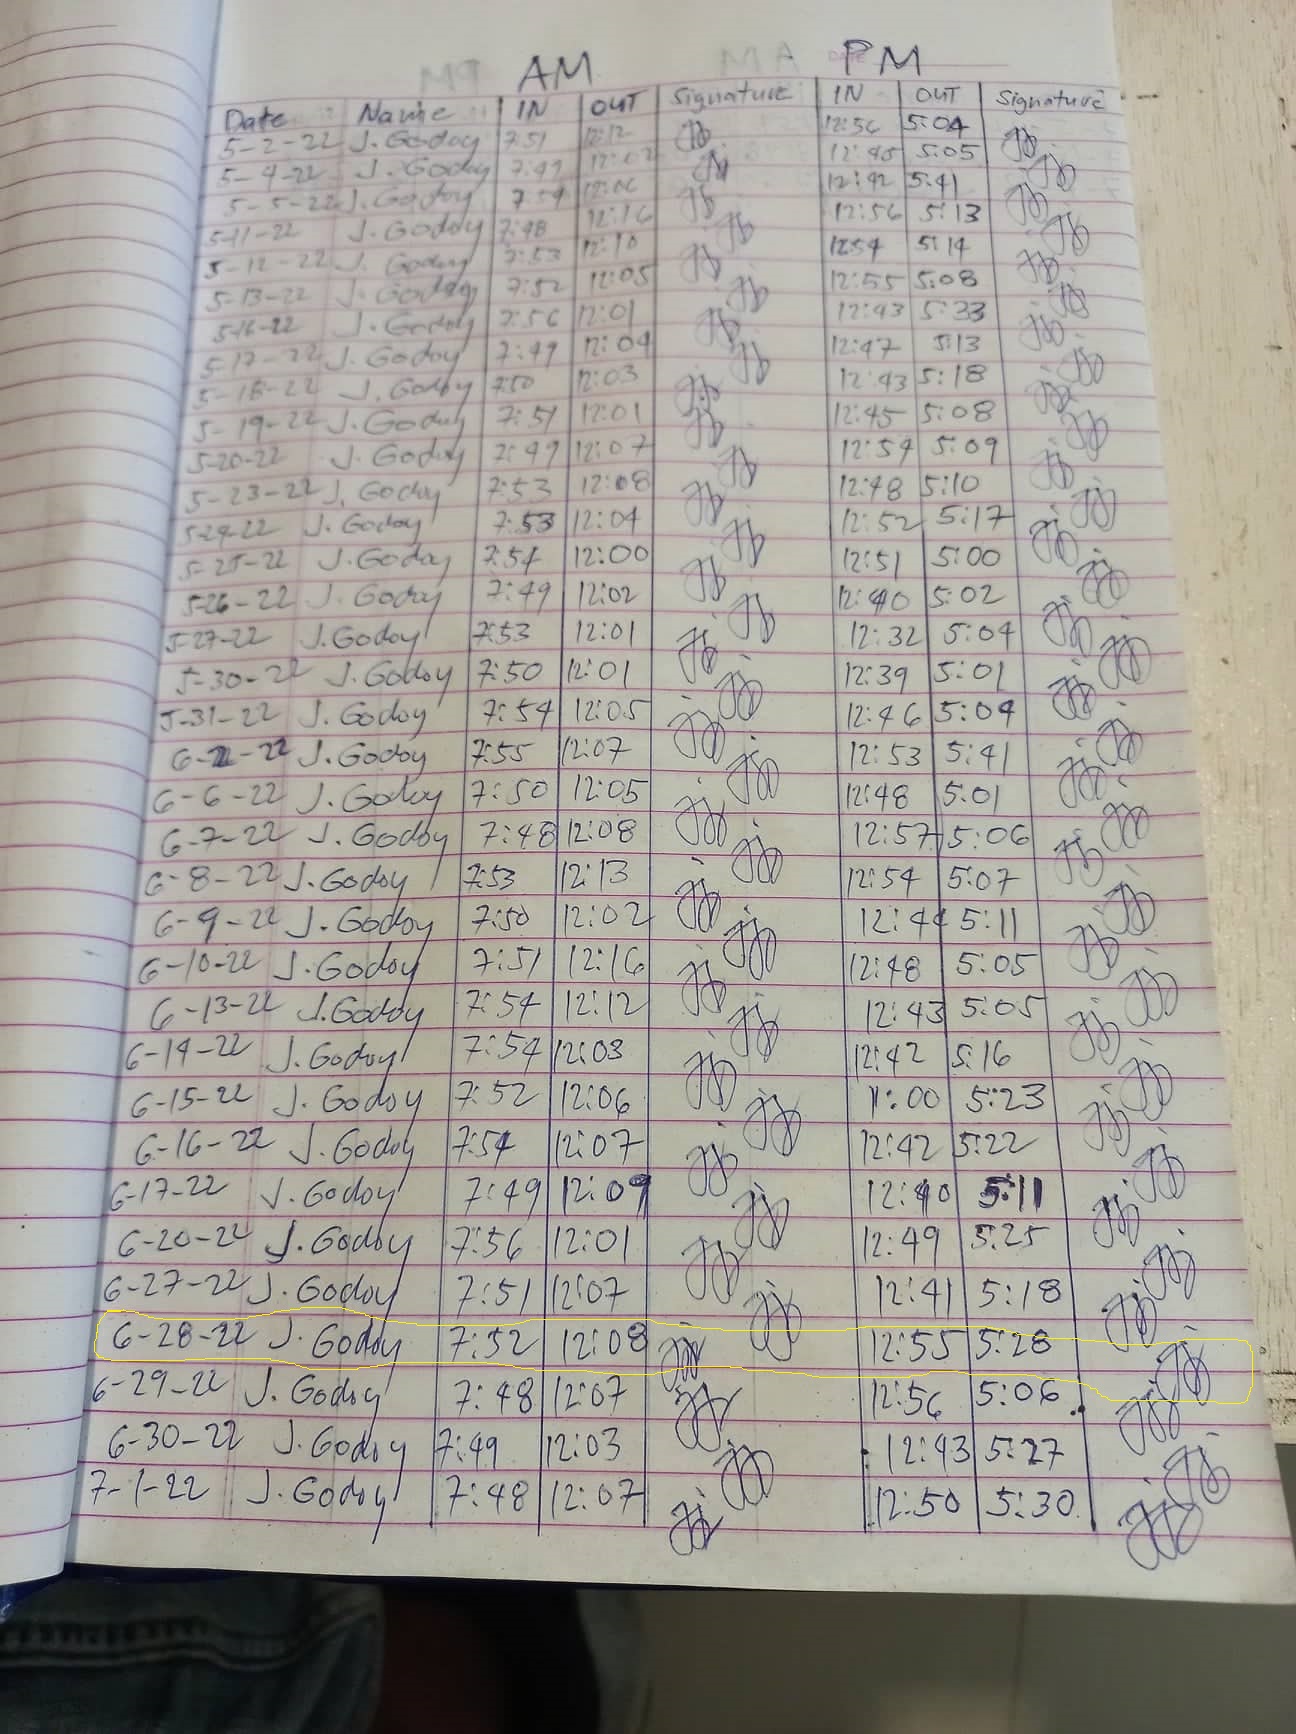 AM PM
Date Name IN OUT Signature IN OUT Signature
5-2-22 J. Godoy 7:51 12:12 12:56 5:04
5-4-22 J. Godoy 7:49 12:02 12:45 5:05
5-5-22 J. Godoy 7:54 12:06 12:42 5:41
5-11-22 J. Godoy 7:48 12:16 12:56 5:13
5-12-22 J. Godoy 7:53 12:10 12:54 5:14
5-13-22 J. Godoy 7:52 12:05 12:55 5:08
5-16-22 J. Godoy 7:56 12:01 12:43 5:33
5-17-22 J. Godoy 7:49 12:04 12:47 5:13
5-18-22 J. Godoy 7:50 12:03 12:43 5:18
5-19-22 J. Godoy 7:51 12:01 12:45 5:08
5-20-22 J. Godoy 7:49 12:07 12:54 5:09
5-23-22 J. Godoy 7:53 12:08 12:48 5:10
5-24-22 J. Godoy 7:53 12:04 12:52 5:17
5-25-22 J. Godoy 7:54 12:00 12:51 5:00
5-26-22 J. Godoy 7:49 12:02 12:40 5:02
5-27-22 J. Godoy 7:53 12:01 12:32 5:04
5-30-22 J. Godoy 7:50 12:01 12:39 5:01
5-31-22 J. Godoy 7:54 12:05 12:46 5:04
6-2-22 J. Godoy 7:55 12:07 12:53 5:41
6-6-22 J. Godoy 7:50 12:05 12:48 5:01
6-7-22 J. Godoy 7:48 12:08 12:57 5:06
6-8-22 J. Godoy 7:53 12:13 12:54 5:07
6-9-22 J. Godoy 7:50 12:02 12:44 5:11
6-10-22 J. Godoy 7:51 12:16 12:48 5:05
6-13-22 J. Godoy 7:54 12:12 12:43 5:05
6-14-22 J. Godoy 7:54 12:03 12:42 5:16
6-15-22 J. Godoy 7:52 12:06 1:00 5:23
6-16-22 J. Godoy 7:54 12:07 12:42 5:22
6-17-22 J. Godoy 7:49 12:09 12:40 5:11
6-20-22 J. Godoy 7:56 12:01 12:49 5:25
6-27-22 J. Godoy 7:51 12:07 12:41 5:18
6-28-22 J. Godoy 7:52 12:08 12:55 5:28
6-29-22 J. Godoy 7:48 12:07 12:56 5:06
6-30-22 J. Godoy 7:49 12:03 12:43 5:27
7-1-22 J. Godoy 7:48 12:07 12:50 5:30